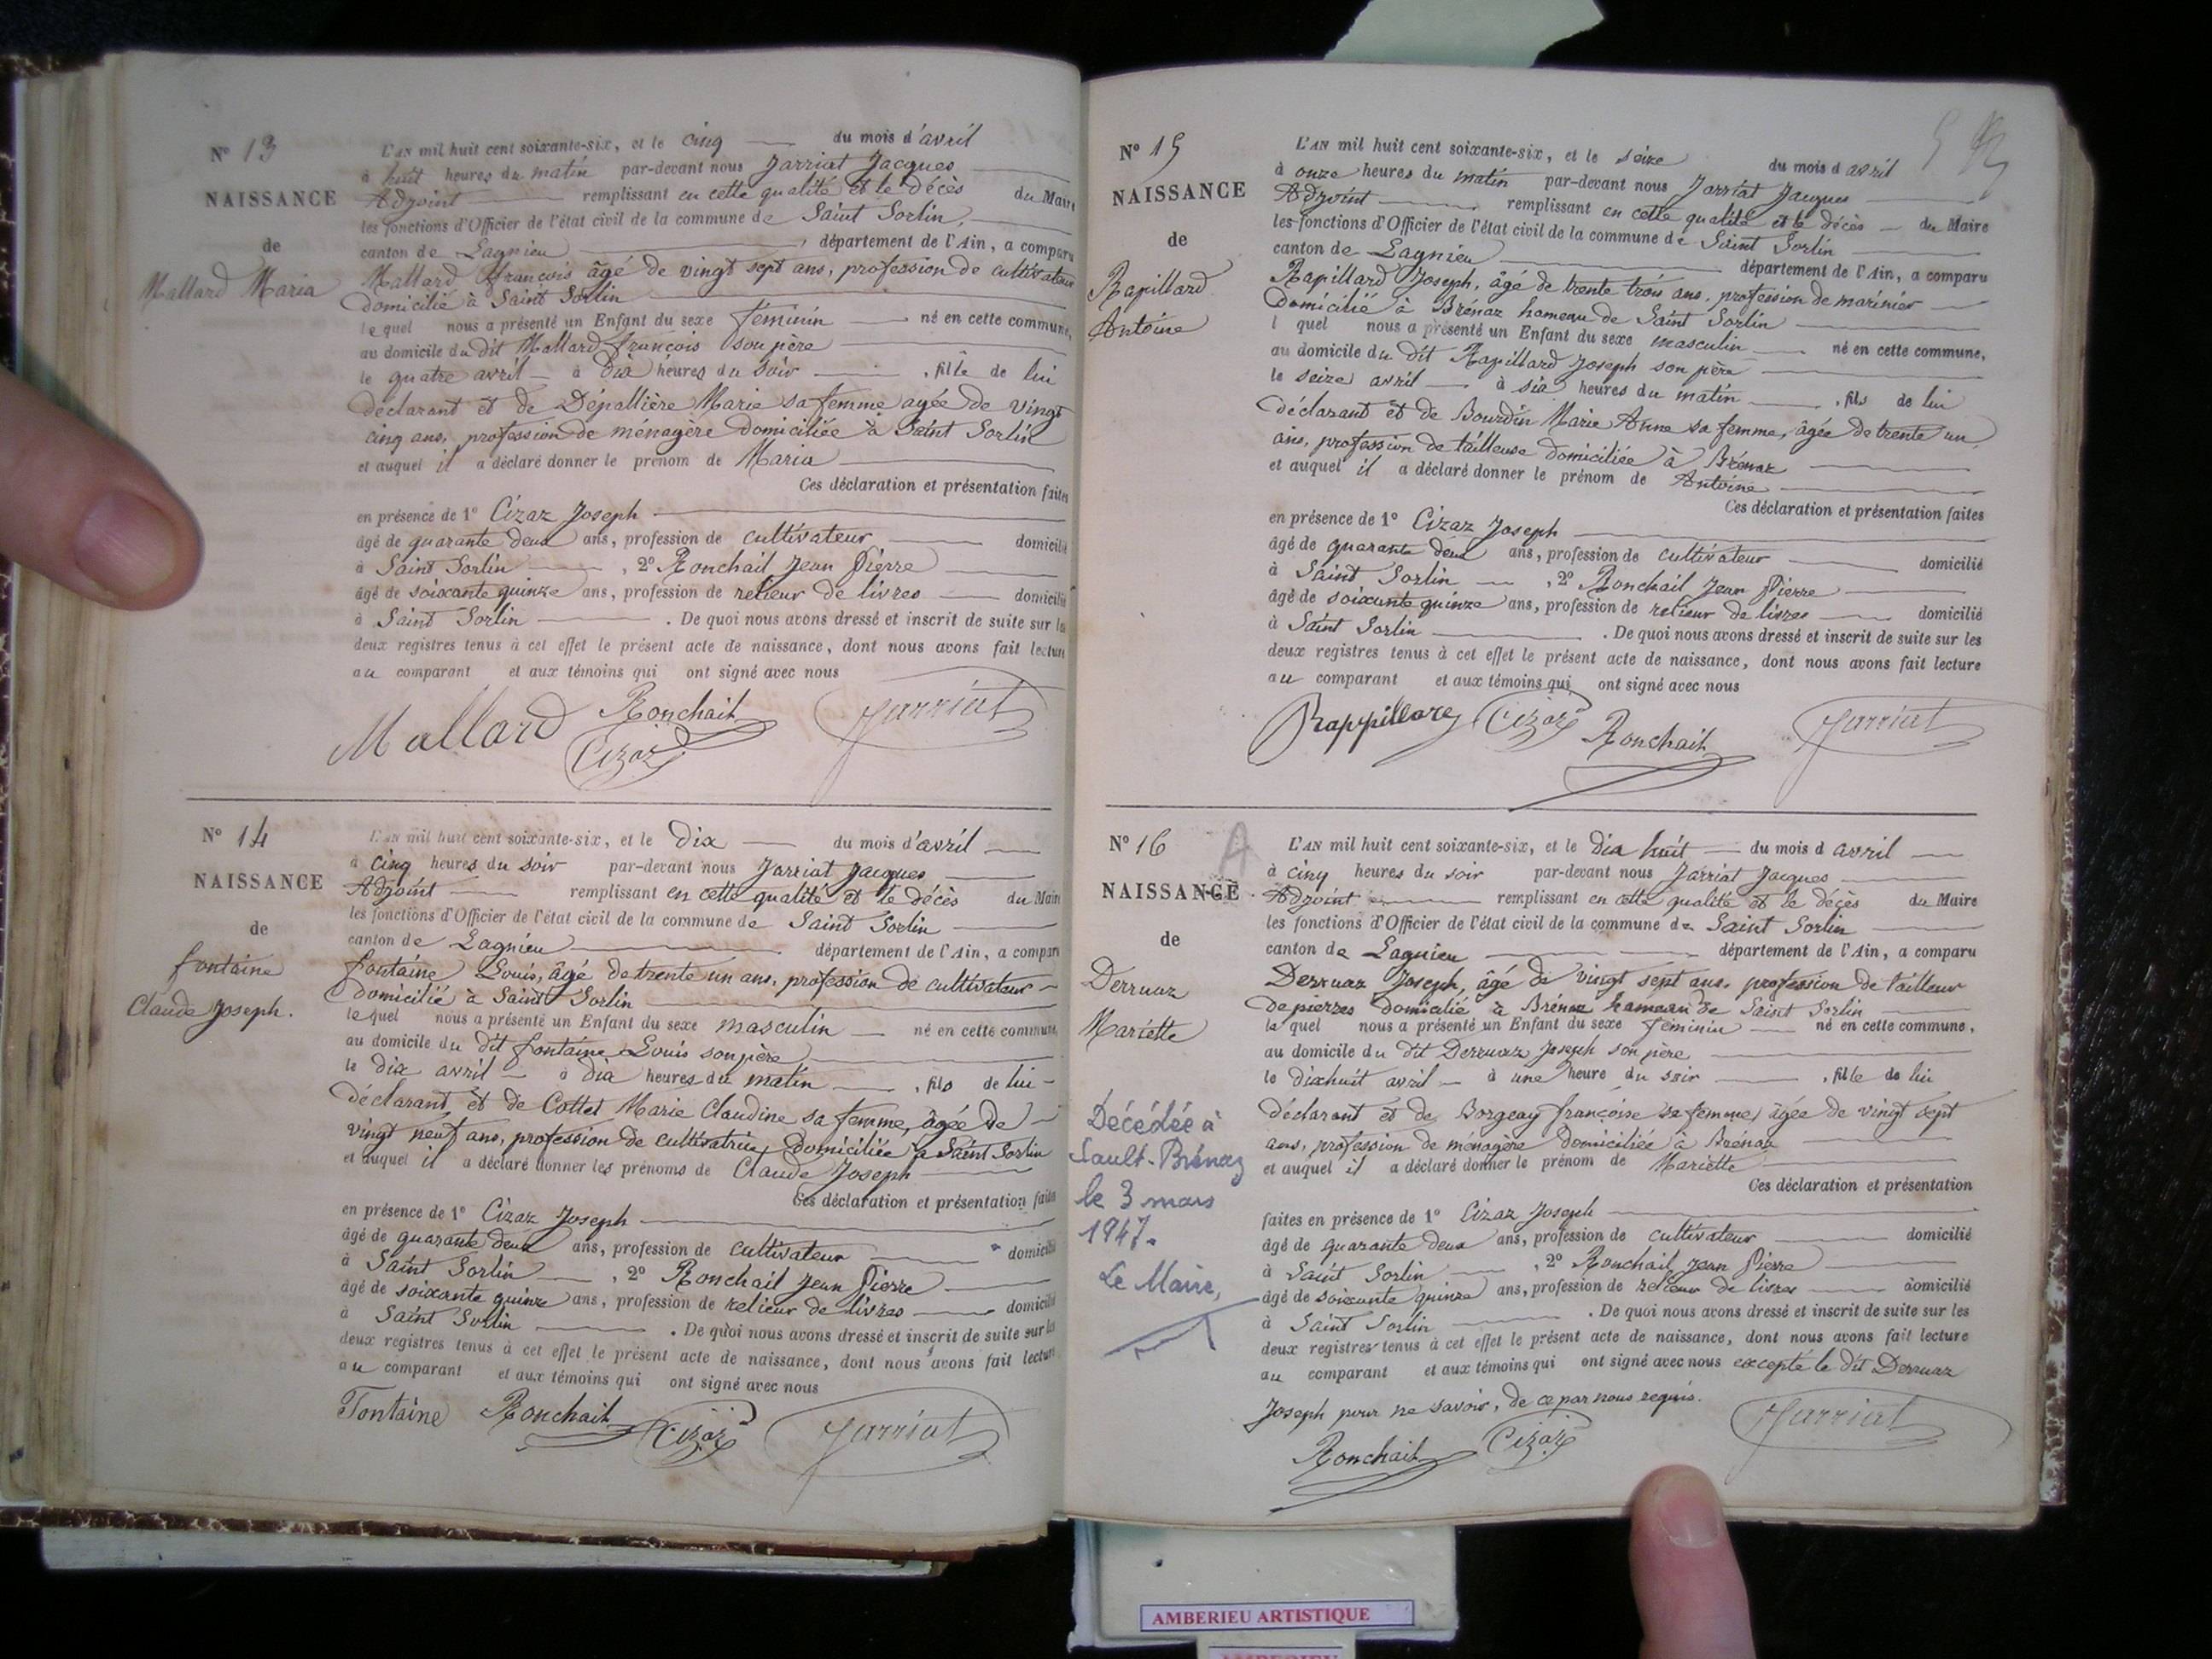 N° 13
NAISSANCE
de
Mallard Maria
L'AN mil huit cent soixante-six, et le cinq du mois d'avril
à huit heures du matin par-devant nous Jarriat Jacques
Adjoint remplissant en cette qualité et le décès du Maire
les fonctions d'Officier de l'état civil de la commune de Saint Sorlin
canton de Lagnieu, département de l'Ain, a comparu
Mallard françois âgé de vingt sept ans, profession de cultivateur
domicilié à Saint Sorlin
lequel nous a présenté un Enfant du sexe féminin né en cette commune,
au domicile du dit Mallard françois son père
le quatre avril à dix heures du soir, fille de lui
déclarant et de Dépallière Marie sa femme agée de vingt
cinq ans, profession de ménagère domiciliée à Saint Sorlin
et auquel il a déclaré donner le prénom de Maria
Ces déclaration et présentation faites
en présence de 1° Cizaz Joseph
âgé de quarante deux ans, profession de cultivateur domicilié
à Saint Sorlin, 2° Ronchail Jean Pierre
âgé de soixante quinze ans, profession de relieur de livres domicilié
à Saint Sorlin. De quoi nous avons dressé et inscrit de suite sur les
deux registres tenus à cet effet le présent acte de naissance, dont nous avons fait lecture
au comparant et aux témoins qui ont signé avec nous
Mallard Ronchail Cizaz Jarriat
N° 14
NAISSANCE
de
fontaine
Claude Joseph.
L'AN mil huit cent soixante-six, et le dix du mois d'avril
à cinq heures du soir par-devant nous Jarriat Jacques
Adjoint remplissant en cette qualité et le décès du Maire
les fonctions d'Officier de l'état civil de la commune de Saint Sorlin
canton de Lagnieu département de l'Ain, a comparu
fontaine Louis, âgé de trente un ans, profession de cultivateur
domicilié à Saint Sorlin
lequel nous a présenté un Enfant du sexe masculin né en cette commune,
au domicile du dit fontaine Louis son père
le dix avril à dix heures du matin, fils de lui
déclarant et de Cottet Marie Claudine sa femme, âgée de
vingt neuf ans, profession de cultivatrice domiciliée à Saint Sorlin
et auquel il a déclaré donner les prénoms de Claude Joseph
Ces déclaration et présentation faites
en présence de 1° Cizaz Joseph
âgé de quarante deux ans, profession de cultivateur domicilié
à Saint Sorlin, 2° Ronchail Jean Pierre
âgé de soixante quinze ans, profession de relieur de livres domicilié
à Saint Sorlin. De quoi nous avons dressé et inscrit de suite sur les
deux registres tenus à cet effet le présent acte de naissance, dont nous avons fait lecture
au comparant et aux témoins qui ont signé avec nous
Fontaine Ronchail Cizaz Jarriat
N° 15
NAISSANCE
de
Rapillard
Antoine
L'AN mil huit cent soixante-six, et le seize du mois d avril
à onze heures du matin par-devant nous Jarriat Jacques
Adjoint remplissant en cette qualité et le décès du Maire
les fonctions d'Officier de l'état civil de la commune de Saint Sorlin
canton de Lagnieu département de l'Ain, a comparu
Rapillard Joseph, âgé de trente trois ans, profession de marinier
domicilié à Brénaz hameau de Saint Sorlin
l quel nous a présenté un Enfant du sexe masculin né en cette commune,
au domicile du dit Rapillard Joseph son père
le seize avril à six heures du matin, fils de lui
déclarant et de Bourdin Marie Anne sa femme, âgée de trente un
ans, profession de tailleuse domiciliée à Brénaz
et auquel il a déclaré donner le prénom de Antoine
Ces déclaration et présentation faites
en présence de 1° Cizaz Joseph
âgé de quarante deux ans, profession de cultivateur domicilié
à Saint Sorlin, 2° Ronchail Jean Pierre
âgé de soixante quinze ans, profession de relieur de livres domicilié
à Saint Sorlin. De quoi nous avons dressé et inscrit de suite sur les
deux registres tenus à cet effet le présent acte de naissance, dont nous avons fait lecture
au comparant et aux témoins qui ont signé avec nous
Rappillard Cizaz Ronchail Jarriat
N° 16
A
NAISSANCE
de
Derruaz
Mariette
Décédée à
Sault-Brénaz
le 3 mars
1947.
Le Maire,
L'AN mil huit cent soixante-six, et le dix huit du mois d avril
à cinq heures du soir par-devant nous Jarriat Jacques
Adjoint remplissant en cette qualité et le décès du Maire
les fonctions d'Officier de l'état civil de la commune de Saint Sorlin
canton de Lagnieu département de l'Ain, a comparu
Derruaz Joseph, âgé de vingt sept ans, profession de tailleur
de pierres domicilié à Brénaz hameau de Saint Sorlin
le quel nous a présenté un Enfant du sexe féminin né en cette commune,
au domicile du dit Derruaz Joseph son père
le dixhuit avril à une heure du soir, fille de lui
déclarant et de Borgeay françoise sa femme, âgée de vingt sept
ans, profession de ménagère domiciliée à Brénaz
et auquel il a déclaré donner le prénom de Mariette
Ces déclaration et présentation
faites en présence de 1° Cizaz Joseph
âgé de quarante deux ans, profession de cultivateur domicilié
à Saint Sorlin, 2° Ronchail Jean Pierre
âgé de soixante quinze ans, profession de relieur de livres domicilié
à Saint Sorlin. De quoi nous avons dressé et inscrit de suite sur les
deux registres tenus à cet effet le présent acte de naissance, dont nous avons fait lecture
au comparant et aux témoins qui ont signé avec nous excepté le dit Derruaz
Joseph pour ne savoir, de ce par nous requis.
Ronchail Cizaz Jarriat
AMBERIEU ARTISTIQUE
AMBERIEU